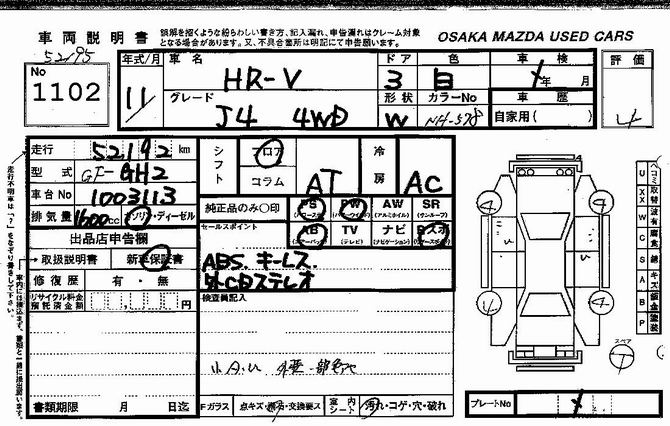 車両説明書
誤解を招くような紛らわしい書き方、記入漏れ、申告漏れはクレーム対象
となる場合があります。又、不具合箇所は明記にて申告願います。
OSAKA MAZDA USED CARS
52195
No
1102
年式/月
11/
車名
HR-V
ドア
3
色
白
車検
年 月
評価
4
グレード
J4 4WD
形状
W
カラーNo
NH-578
車歴
自家用( )
走行
52192 km
型式
GF-GH2
車台No
1003113
排気量
1600cc
ガソリン・ディーゼル
シフト
フロア
コラム
AT
冷房
AC
純正品のみ〇印
PS
(パワーステ)
PW
(パワーウインド)
AW
(アルミホイル)
SR
(サンルーフ)
セールスポイント
AB
(エアーバック)
TV
(テレビ)
ナビ
(ナビゲーション)
Rスポ
(リヤースポイラ)
ABS. キーレス.
外CDステレオ
出品店申告欄
→取扱説明書 新車保証書
修復歴 有・無
リサイクル料金
預託済金額
円
検査員記入
小A.U
書類期限 月 日迄
Fガラス
点キズ・飛石・交換要ス
室内
シート
汚れ・コゲ・穴・破れ
走行不明車は「?」をなぞり書きして下さい。
車内には積込まず、書類と一緒に提出願います。
U ヘコミ
XX 取替
W 波有
C 腐食
S 錆
A キズ
B 鈑金
P 塗装
4
4
4
4
スペア
T
プレートNo